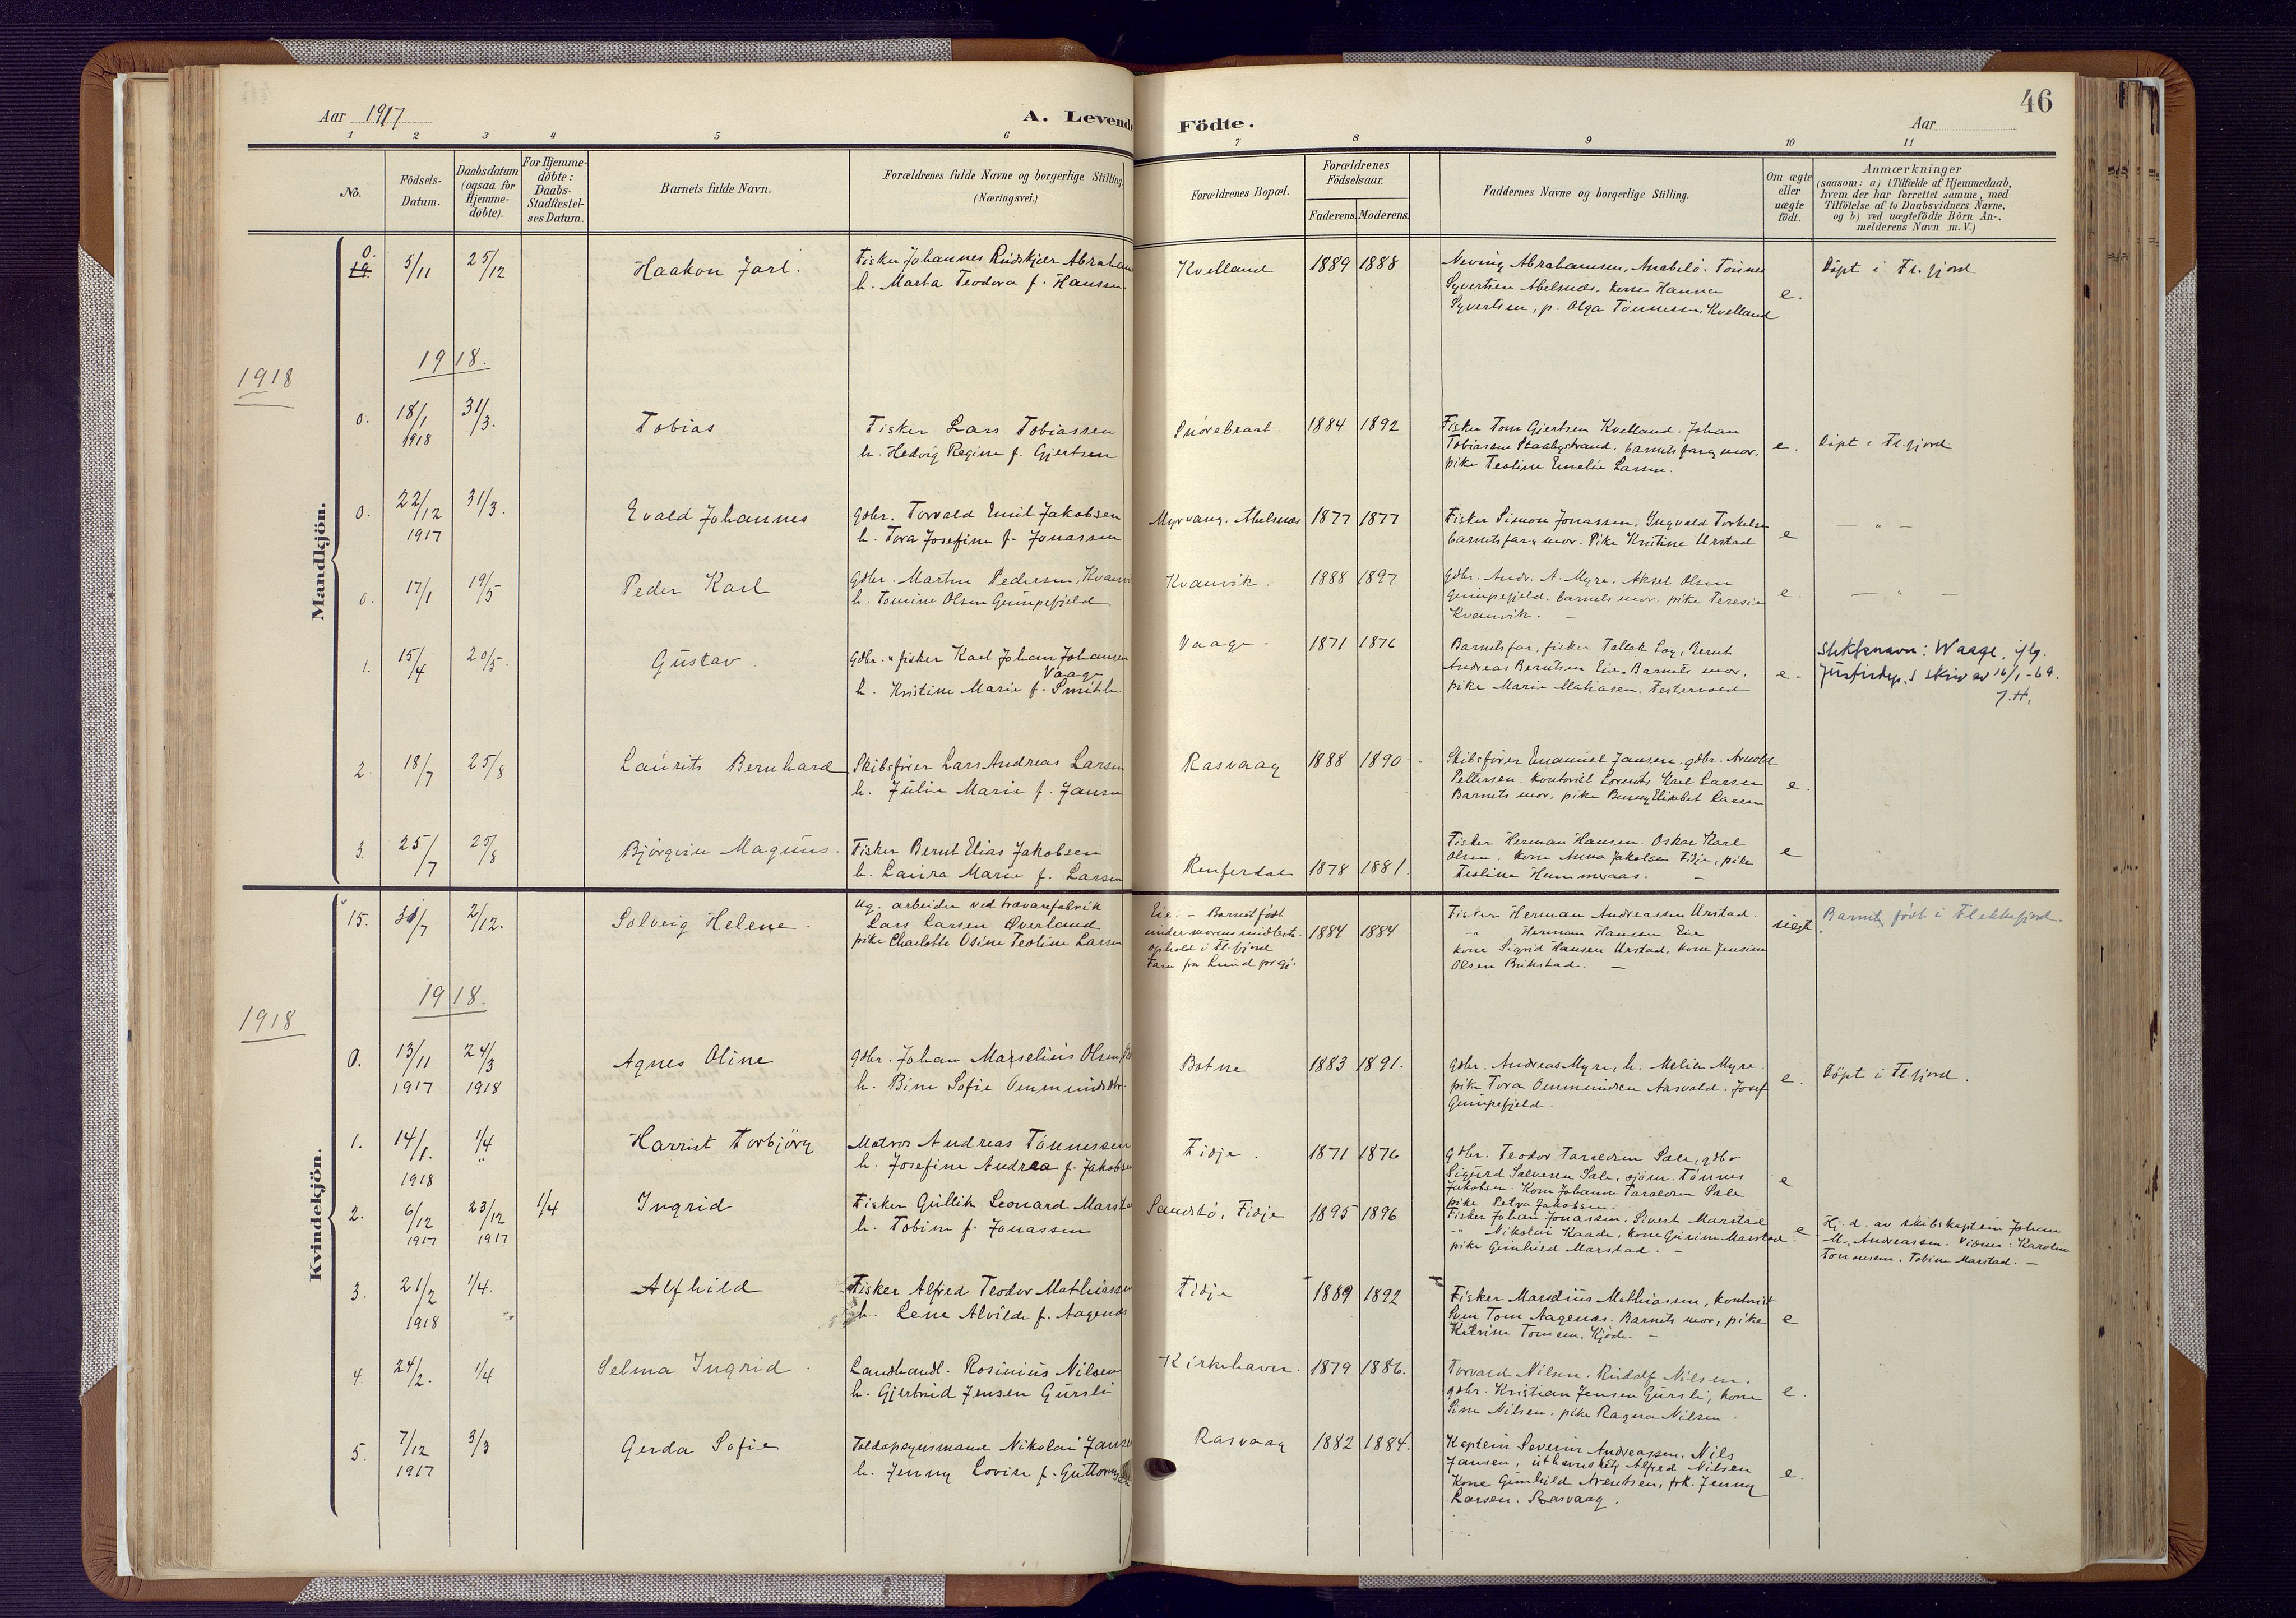 46
Aar 1917
A. Levende Fødte.
Aar
1 2 3 4 5 6 7 8 9 10 11
No.
Födsels-Datum.
Daabsdatum (ogsaa for Hjemme-döbte).
For Hjemme-döbte: Daabs-Stadfæstel-ses Datum.
Barnets fulde Navn.
Forældrenes fulde Navne og borgerlige Stilling (Næringsvei.)
Forældrenes Bopæl.
Forældrenes Födselsaar.
Faderens. Moderens.
Faddernes Navne og borgerlige Stilling.
Om ægte eller uægte födt.
Anmærkninger
(saasom: a) i Tilfælde af Hjemmedaab, hvem der har forrettet samme, med Tilföielse af to Daabsvidners Navne, og b) ved uægtefödte Börn An-melderens Navn m. V.)
Mandkjön.
0. 5/11 25/12 Haakon Jarl. Fisker Johannes Rudskjær Abraham Kvelland 1889 1888 Abrahamsen, Anabelö. Tönnes e. Döpt i Fl.fjord
h. Marta Teodora f. Hansen. Syvertsen Abelsnæs. Kone Hanna
Syvertsen, p. Olga Tönnessen, Kvelland
1918
1918.
0. 18/1 1918 31/3. Tobias Fisker Lars Tobiassen 1884 1892 Fisker Tom Gjertsen Kvelland. Johan e. Döpt i Fl.fjord
h. Hedvig Regine f. Gjertsen Tobiasen barnets far og mor.
pike Teoline Emelie Larsen.
0. 22/12 1917 31/3. Evald Johannes gdbr. Torvald Emil Jakobsen Myrvang. Abelsnæs 1877 1877 Fisker Simon Jonassen, Ingvald Torkelsen e — " —
h. Tora Josefine f. Jonassen barnets far & mor. Pike Kristine Urstad
0. 17/1 19/5 Peder Karl Gdbr. Martin Pedersen, Kvanv Kvanvik. 1888 1897 gdbr. Andr. A. Myre, Aksel Olsen e. — " —
h. Tomine Olsen Gumpefjeld Gumpefjeld, barnets mor. pike Teresie
Kvanvik. —
1. 15/4 20/5. Gustav. Gdbr. & fisker Karl Johan Johansen Vaage. 1871 1876 Barnets far, fisker Tallak Log, Bernt e. Slektsnavn: Waage. iflg.
Vaage
h. Kristine Marie f. Smith. Andreas Berntsen Eie. Barnets mor, Justisdep.s skriv av 16/1-69.
pike Marie Mathiasen. J.H.
2. 18/7 25/8 Laurits Bernhard Skibsfører Lars Andreas Larsen Rasvaag 1888 1890 Skibsfører Emanuel Jansen, gdbr. Arnold e.
h. Julie Marie f. Jansen Pettersen. Kontorist Lorents Karl Larsen
Barnets mor, pike Elisabet Larsen
3. 25/7 25/8 Björgvin Magnus. Fisker Bernt Elias Jakobsen 1878 1881. Fisker Herman Hansen. Oskar Karl e
h. Laura Marie f. Larsen Olsen. Kone Anna Jakobsen Fidje, pike
Teoline Hummeraas. —
Kvindekjön.
15. 31/7 2/12. Solveig Helene. ug. arbeider ved trævarefabrik Eie. – Barnet født 1884 1884 Fisker Herman Andreassen Urstad uegt Barnet født i Flekkefjord.
Lars Larsen Øverland under morens midlert. -"- Herman Hansen Eie
pike Charlotte Osine Teoline Larsen ophold i Fl.fjord kone Sigrid Hansen Urstad, kone Jensine
Faren fra Lund prgj. Olsen Birkstad. —
1918
1918.
0. 13/11 1917 24/3 1918 Agnes Oline gdbr. Johan Marselius Olsen Botne 1883 1891. gdbr. Andreas Myre, h. Melia Myre. e. Döpt i Fl.fjord.
h. Bine Sofie Ommundsdtr pike Tora Ommundsen Aasvold, Josef
Gumpefjeld.
1. 14/1. 1918 1/4 " Harriet Torbjörg Matros Andreas Tönnessen Fidje. 1871 1876 gdbr. Teodor Taraldsen Sale, gdbr. e
h. Josefine Andrea f. Jakobsen Sigurd Salvesen Sale, sjöm. Tönnes
Jakobsen. Kone Johanne Taraldsen Sale
pike Petra Jakobsen.
2. 6/12 1917 23/12 1917 1/4 Ingrid Fisker Gullik Leonard Marstad Sandstö, Fidje 1895 1896 Fisker Johan Jonassen, Sivert Marstad e Hj.d. av skibskaptein Johan
h. Tobine f. Jonassen " Nikolai Kaade, kone Gurine Marstad. M. Andreassen. Vidner: Karoline
pike Gunhild Marstad. — Tönnesen, Tobine Marstad. —
3. 21/2 1918 1/4. Alfhild Fisker Alfred Teodor Mathiassen Fidje 1889 1892 Fisker Mathiassen, kontorist e
h. Lene Alvilde f. Aagenæs Sven Tom Aagenæs. Barnets mor, pike
Katrine Tomsen,
4. 24/2. 1/4 Selma Ingrid. Landhandl. Rosinius Nilsen Kirkehavn. 1879 1886. Torvald Nilsen, Rudolf Nilsen. e.
h. Gjertrud Jensen Gursli gdbr. Kristian Jensen Gursli, kone
Sina Nilsen, pike Ragna Nilsen.
5. 7/12 1917 3/3 Gerda Sofie Toldopsynsmand Nikolai Jansen Rasvaag 1882 1884. Kaptein Severin Andreassen. Nils e.
h. Jenny Lovise f. Guttormsen Jansen, Alfred Nilsen
Kone Gunhild Arentsen, frk. Jenny
Larsen. Rasvaag.